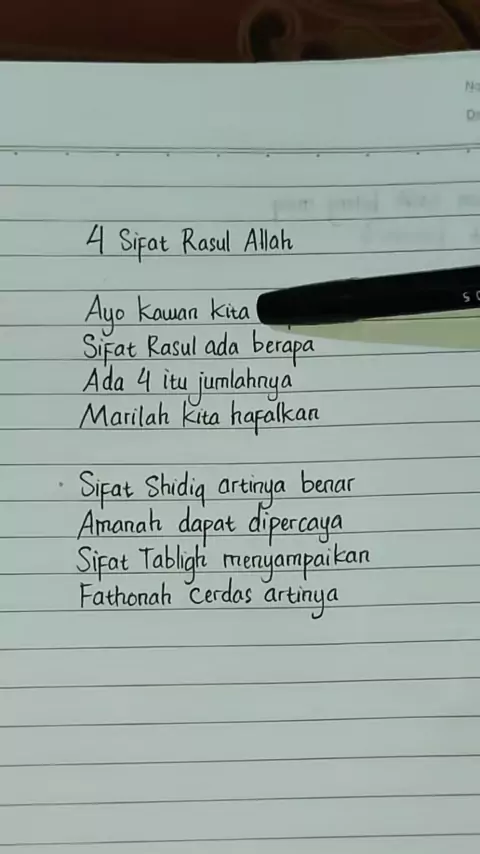 4 Sifat Rasul Allah
Ayo kawan kita
Sifat Rasul ada berapa
Ada 4 itu jumlahnya
Marilah kita hafalkan
Sifat Shidiq artinya benar
Amanah dapat dipercaya
Sifat Tabligh menyampaikan
Fathonah cerdas artinya